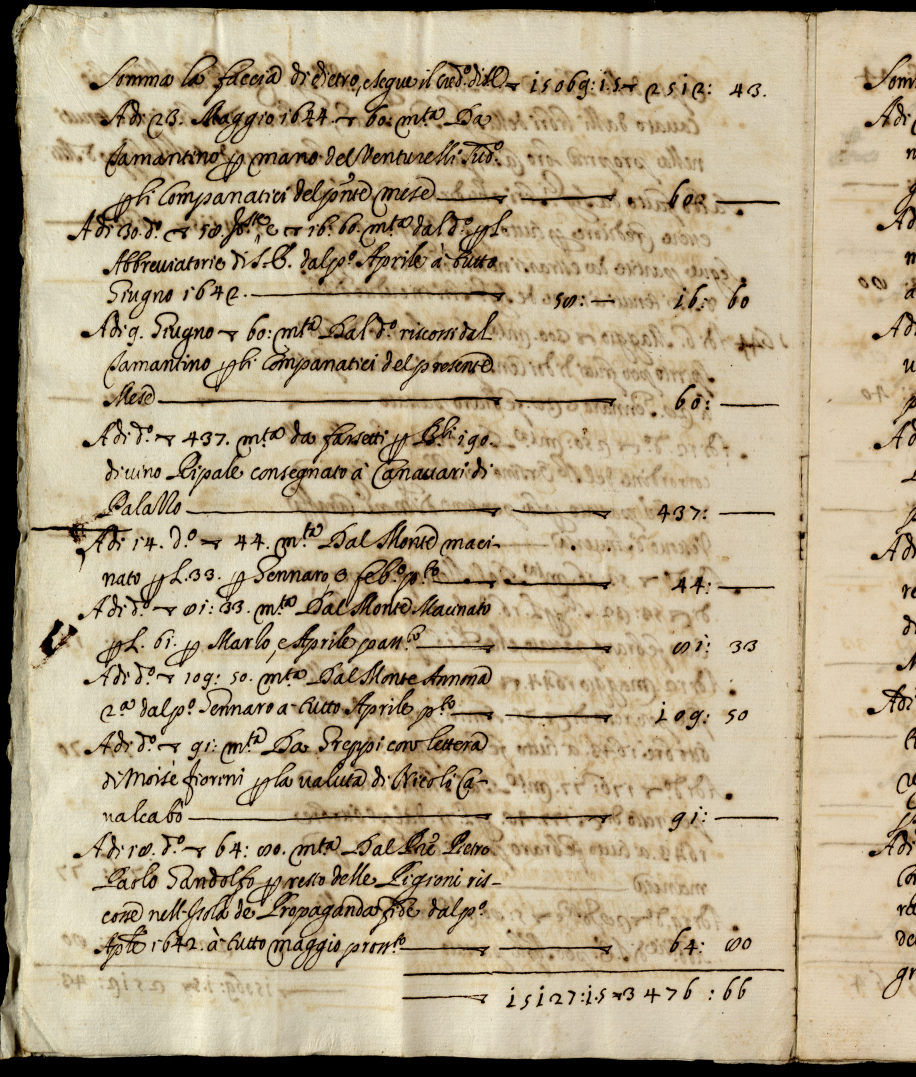 Somma la faccia di dietro, e segue il cred.º 15069:15 2512: 43.
Adi 23. Maggio 1644. 60: m.ta Da
Camantino p mano del Venturelli
p li Companatici del pnte mese 60:
Adi 30. d.º 58. 16. 60. m.ta dal d.º p L
Abbreviatorie di S. B. dal p.º Aprile à tutto
Giugno 1642. 58: 16: 60
Adi 9. Giugno 60: m.ta Dal d.º riscossi dal
Camantino p li Companatici del presente
Mese 60:
Adi d.º 437. m.ta da farsetti p B.li 190.
di vino Ripale consegnato à Canavari di
Palazzo 437:
Adi 14. d.º 44. m.ta Dal Monte maci-
nato p L. 33. p Gennaro e feb.º p.to 44:
Adi d.º 81: 33. m.ta Dal Monte Macinato
p L. 61. p Marzo, e Aprile pass.to 81: 33
Adi d.º 109: 50. m.ta Dal Monte Annona
2.a dal p.º Gennaro a tutto Aprile p.to 109: 50
Adi d.º 91: m.ta Da Greppi con lettera
di Moisè fioreni p la valuta di Nicolò Ca-
valcabo 91:
Adi 18. d.º 64: 80. m.ta Dal Pre Pietro
Paolo Gandolfo p resto delle Pigioni ris-
cosse nell'Isola de Propaganda fide dal p.º
Aple 1642. à tutto maggio pross.to 64: 80
15127:15 3476: 66